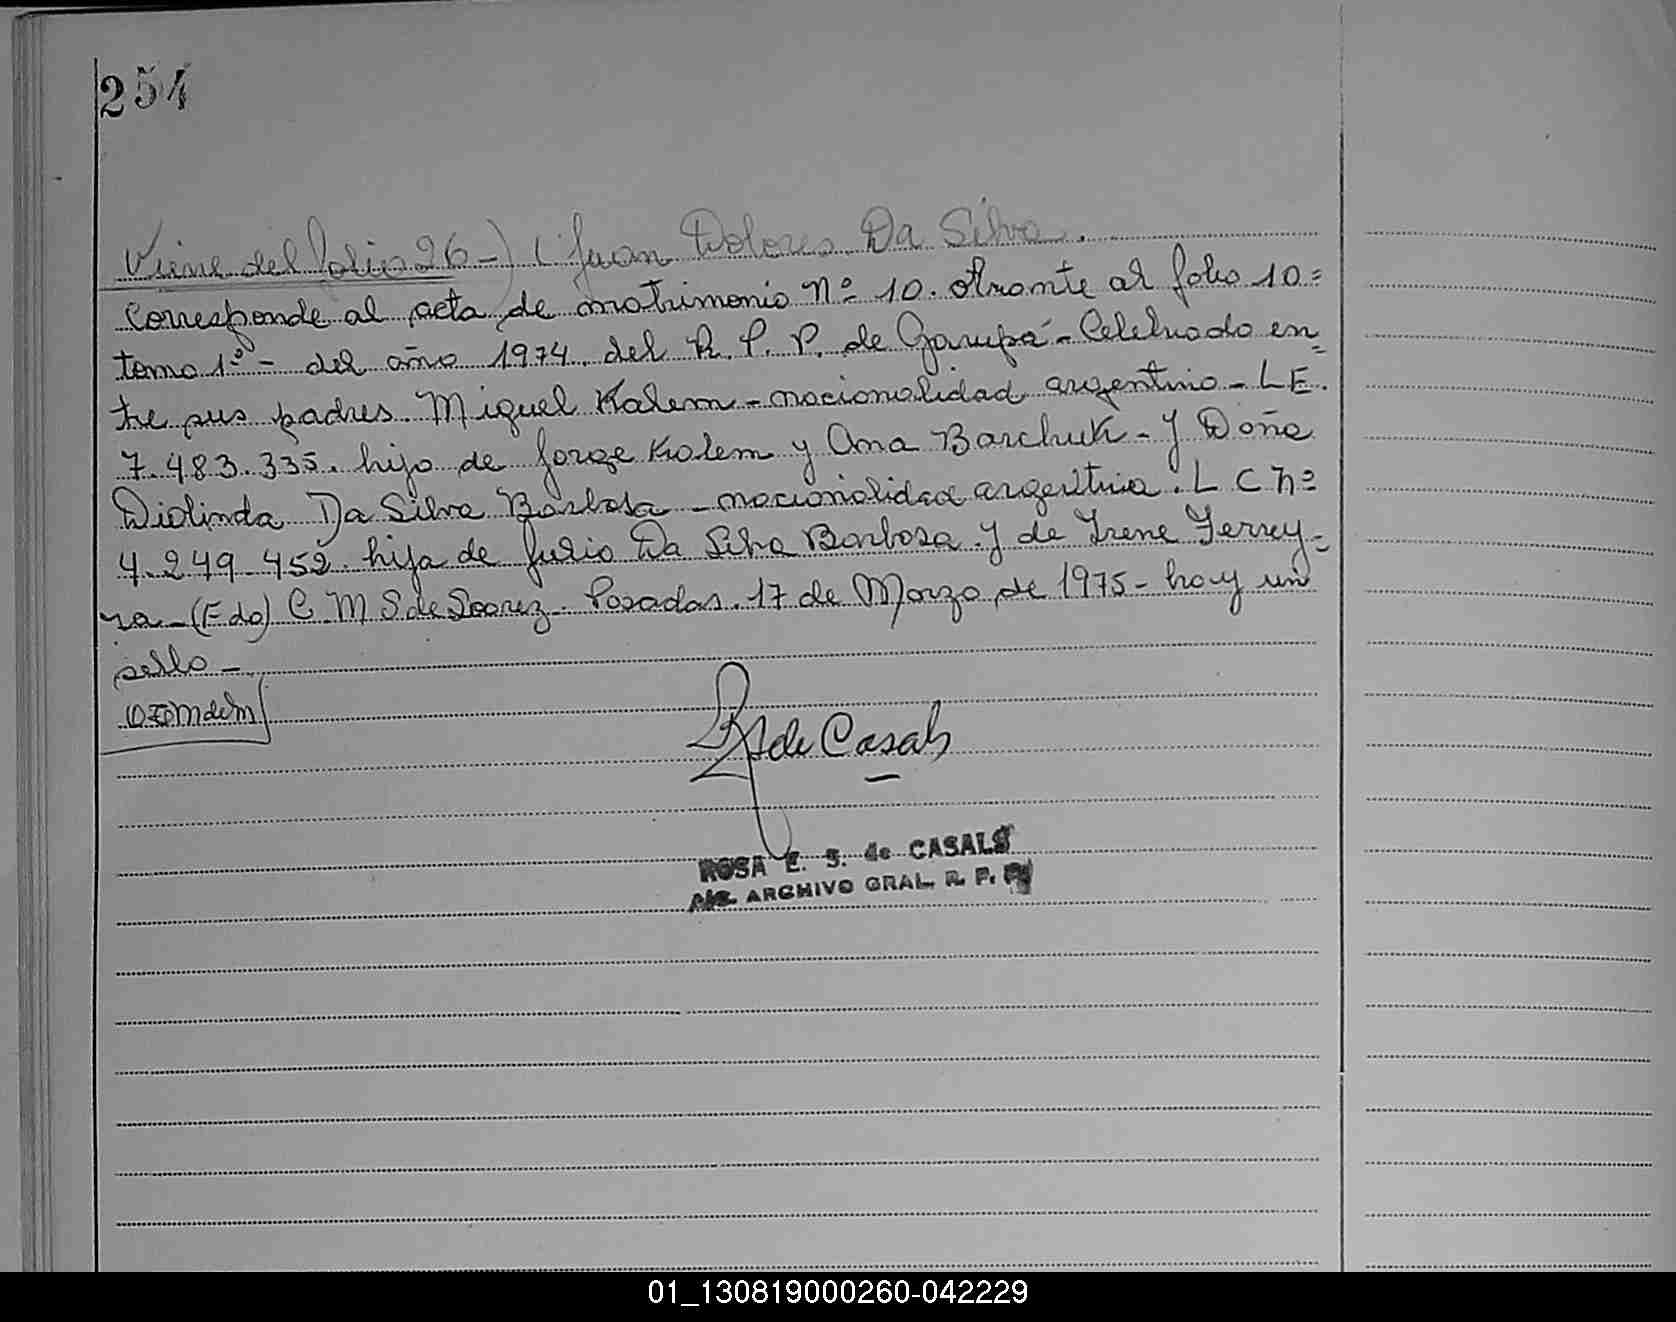 254
Viene del folio 26-) (Juan Dolores Da Silva.
Corresponde al acta de matrimonio Nº 10. obrante al folio 10=
tomo 1º - del año 1974. del R. P. P. de Garupá - Celebrado en=
tre sus padres Miguel Kalem - nacionalidad argentino - L E.
7.483.335. hijo de Jorge Kalem y Ana Barchuk - y Doña
Diolinda Da Silva Barbosa - nacionalidad argentina. L C nº
4.249.452. hija de Julio Da Silva Barbosa y de Irene Ferrey=
ra - (Fdo) C M S de Soarez. Posadas. 17 de Marzo de 1975 - hay un
sello -
de Casals
ROSA E. S. de CASALS
ARCHIVO GRAL. R. P. P.
01_130819000260-042229